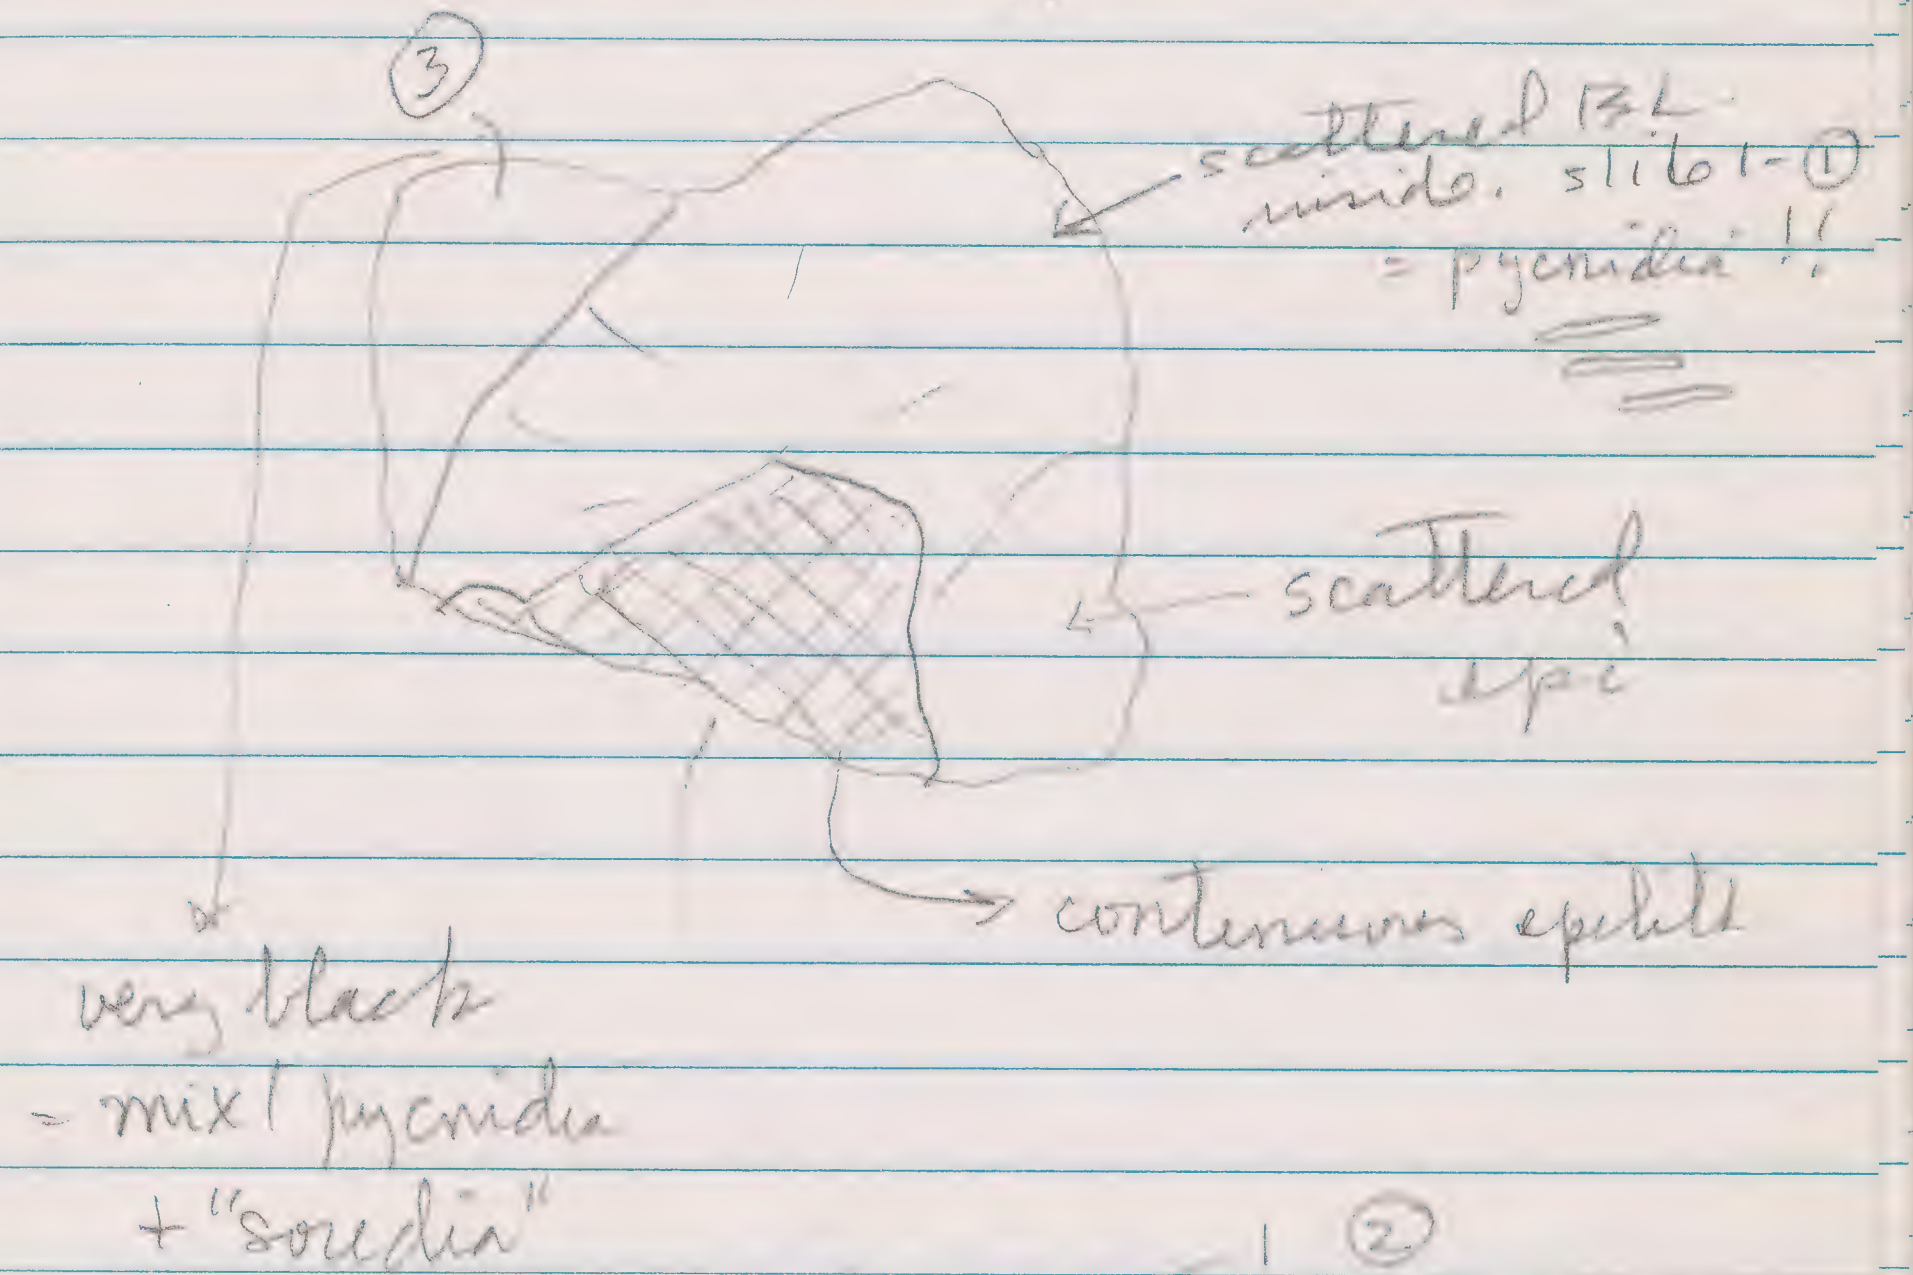 ③
scattered BL
inside. slide 1-①
= pycnidia!!
scattered
epi
continuous
very black
= mix pycnidia
+ "soredia"
1 ②